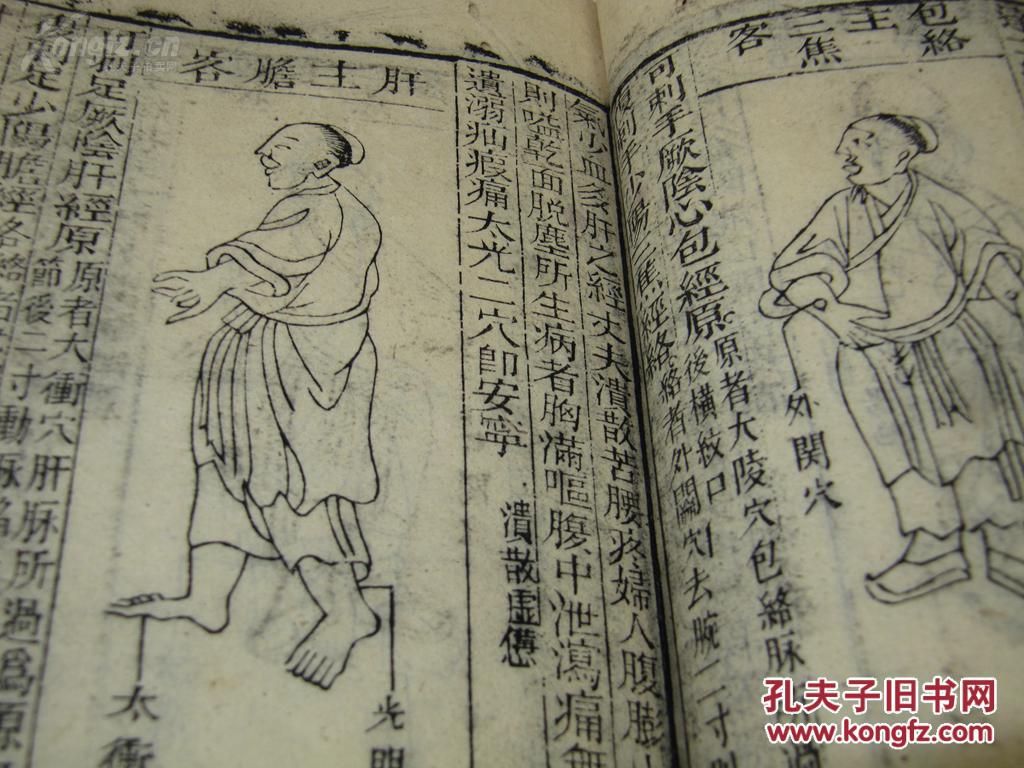 包絡主三焦客
外関穴
可刺手厥陰心包經原原者大陵穴包絡脉
後橫紋口
復刺手少陽三焦經絡絡者外關穴去腕二寸
氣少血多肝之經丈夫潰散苦腰疼婦人腹膨
則嗌乾面脫塵所生病者胸滿嘔腹中泄瀉痛無
遺溺疝瘕痛太光二穴即安寧
潰散虛憊
肝主膽客
光明
太衝
可刺足厥陰肝經原原者大衝穴肝脉所過爲原
節後二寸動脉陷
足少陽膽經絡絡者
孔夫子旧书网
www.kongfz.com